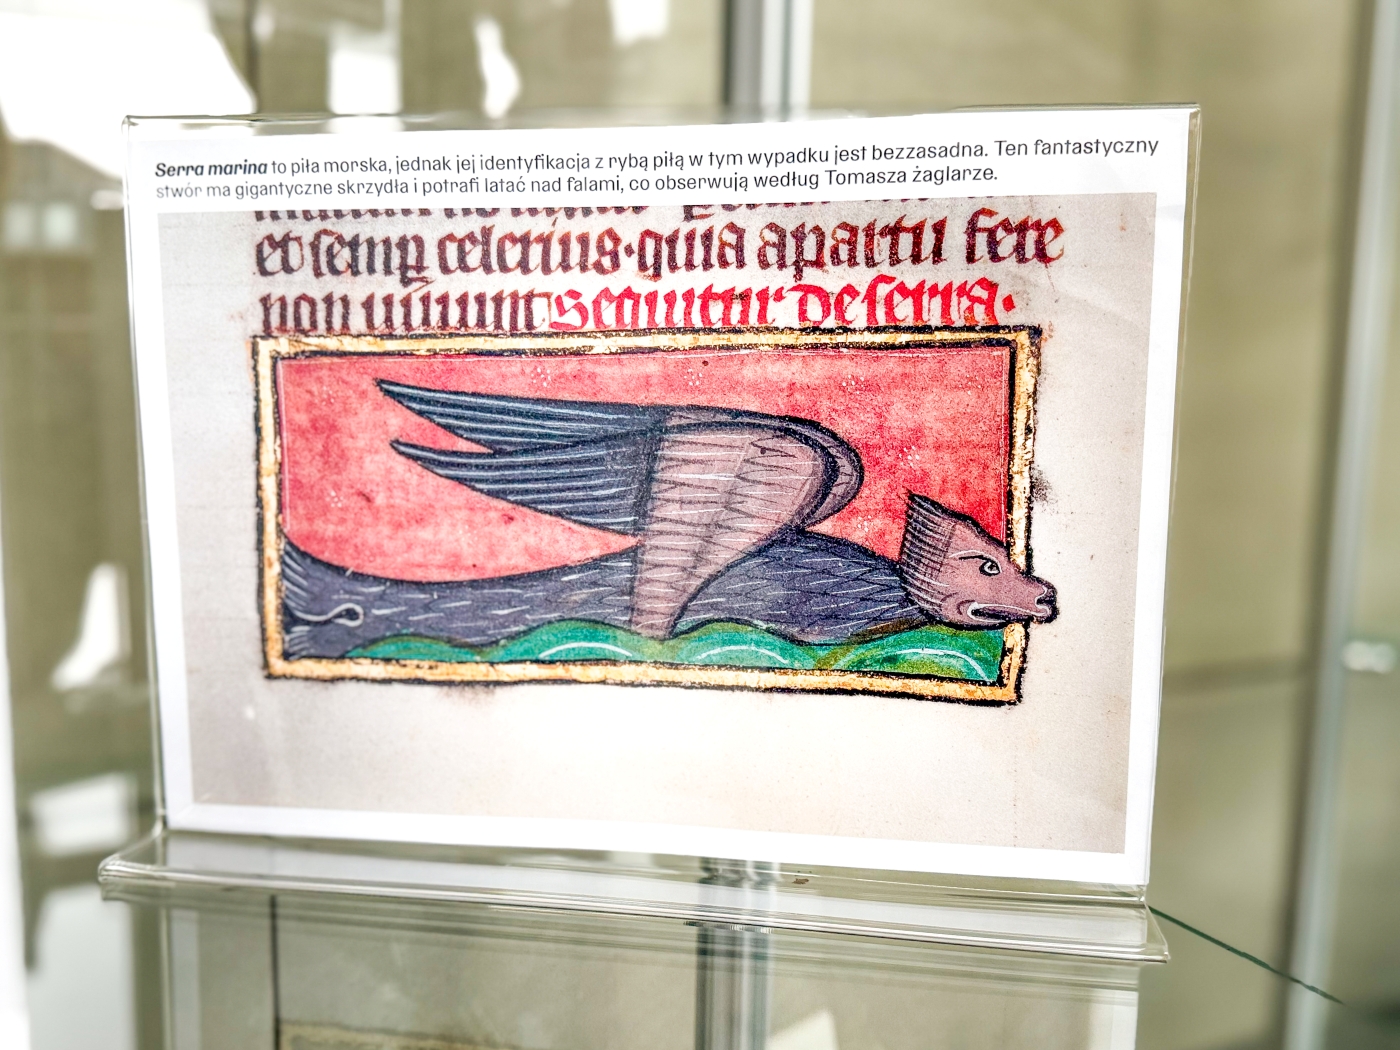 Serra marina to piła morska, jednak jej identyfikacja z rybą piłą w tym wypadku jest bezzasadna. Ten fantastyczny
stwór ma gigantyczne skrzydła i potrafi latać nad falami, co obserwują według Tomasza żaglarze.
et semp celerius·quia apartu fere
non uiuunt sequitur de serra·